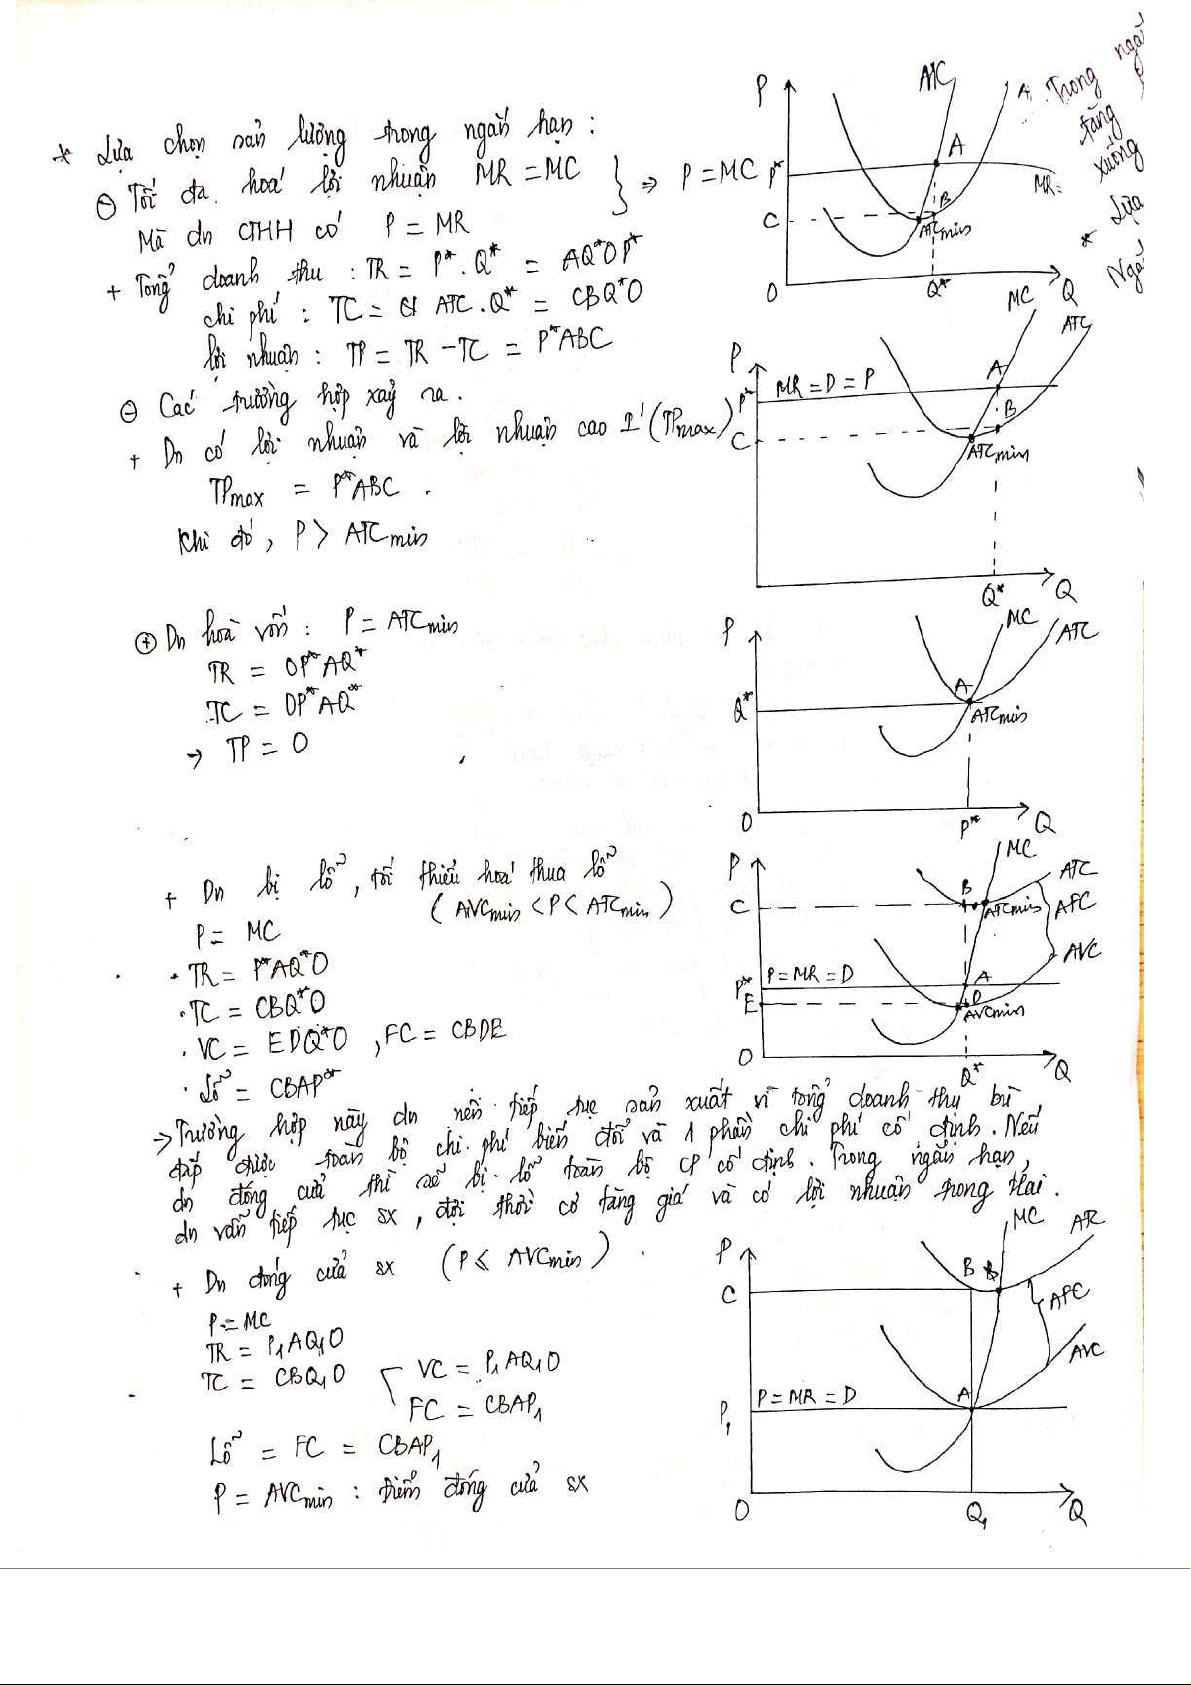 * Lựa chọn sản lượng trong ngắn hạn:
⊖ Tối đa hoá lợi nhuận MR = MC
Mà dn CTHH có P = MR
} => P = MC
+ Tổng doanh thu : TR = P*.Q* = AQ*OP*
chi phí : TC = ATC.Q* = CBQ*O
lợi nhuận : TP = TR - TC = P*ABC
⊖ Các trường hợp xảy ra.
+ Dn có lợi nhuận và lợi nhuận cao 1' (TPmax)
TPmax = P*ABC.
Khi đó, P > ATCmin
⊕ Dn hoà vốn: P = ATCmin
TR = OP*AQ*
TC = OP*AQ*
→ TP = 0
+ Dn bị lỗ, tối thiểu hoá thua lỗ
(AVCmin < P < ATCmin)
P = MC
. TR = P*AQ*O
. TC = CBQ*O
. VC = EDQ*O, FC = CBDE
. Lỗ = CBAP*
→ Trường hợp này dn nên tiếp tục sản xuất vì tổng doanh thu bù
đắp được toàn bộ chi phí biến đổi và 1 phần chi phí cố định. Nếu
dn đóng cửa thì sẽ bị lỗ toàn bộ CP cố định. Trong ngắn hạn,
dn vẫn tiếp tục sx, đợi thời cơ tăng giá và có lợi nhuận trong tlai.
+ Dn đóng cửa sx (P ≤ AVCmin)
P = MC
TR = P₁AQ₁O
TC = CBQ₁O
VC = P₁AQ₁O
FC = CBAP₁
Lỗ = FC = CBAP₁
P = AVCmin : điểm đóng cửa sx
P
A
P*
MR=
C
B
ATCmin
O
Q*
Q
P
MC
ATC
MR = D = P
P*
A
C
B
ATCmin
Q*
Q
P
MC
ATC
A
Q*
ATCmin
O
P*
Q
P
MC
ATC
B
C
ATCmin
AFC
AVC
P = MR = D
P*
A
E
D
AVCmin
O
Q*
Q
P
MC
B
C
AFC
AVC
P = MR = D
A
P₁
O
Q₁
Q
Trong ngắ
tăng
xuống
* Lựa
Ngắ